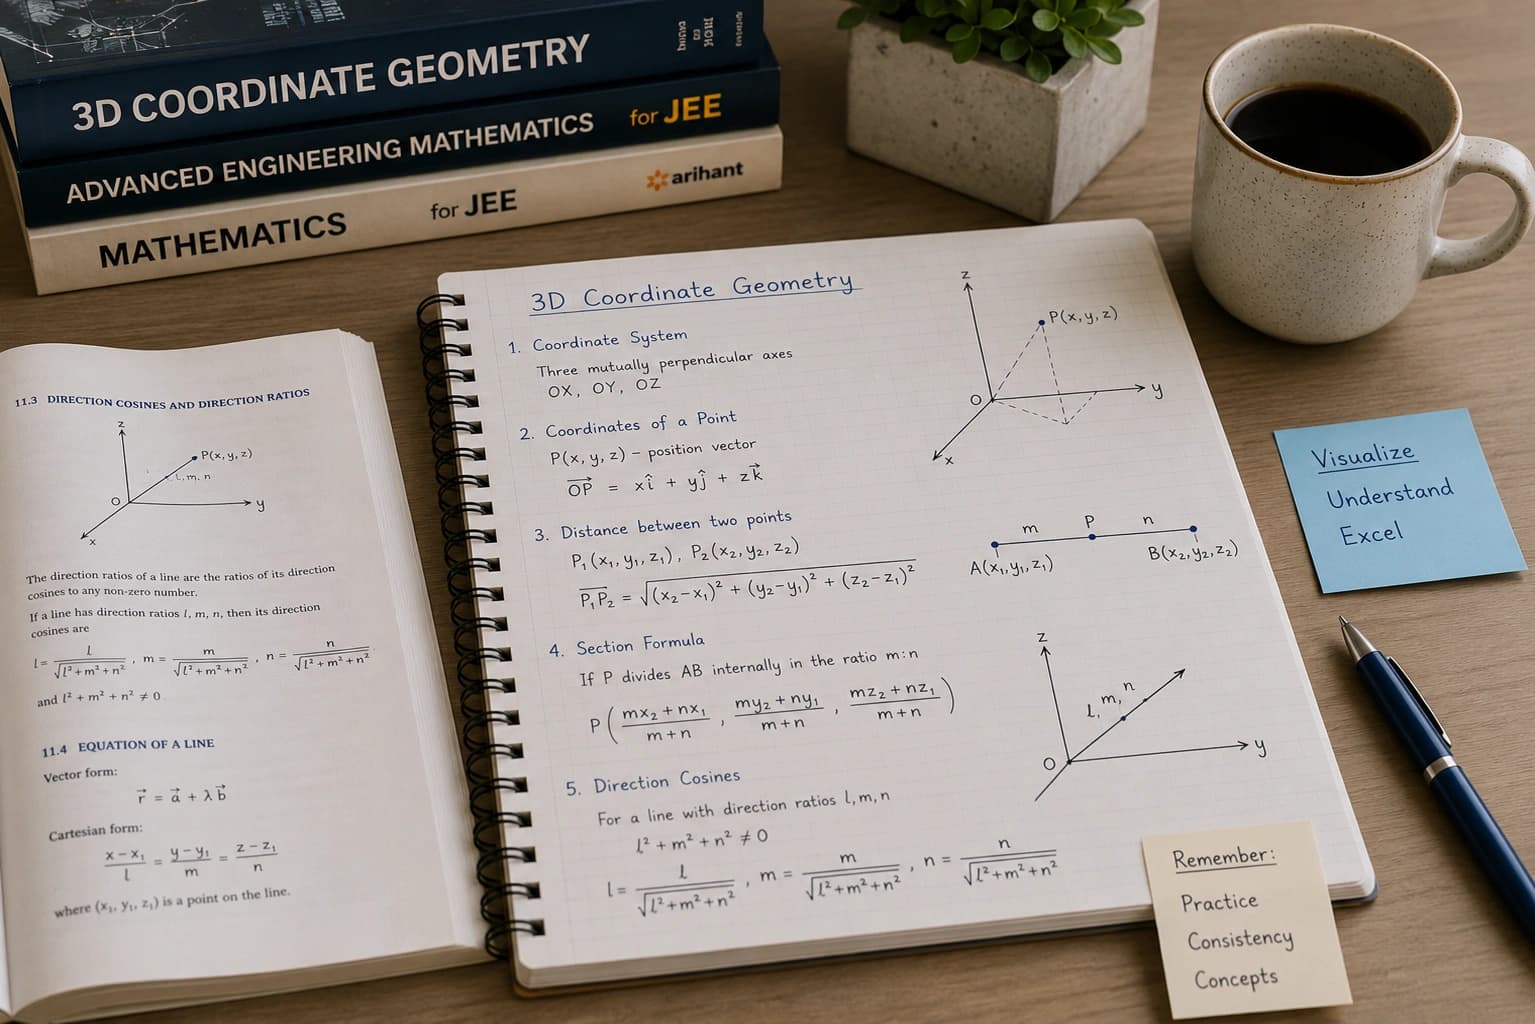 3D COORDINATE GEOMETRY
ADVANCED ENGINEERING MATHEMATICS for JEE
MATHEMATICS for JEE arihant
11.3 DIRECTION COSINES AND DIRECTION RATIOS
z
P(x, y, z)
l, m, n
O
y
x
The direction ratios of a line are the ratios of its direction
cosines to any non-zero number.
If a line has direction ratios l, m, n, then its direction
cosines are
l = l/√(l² + m² + n²) , m = m/√(l² + m² + n²) , n = n/√(l² + m² + n²)
and l² + m² + n² ≠ 0
11.4 EQUATION OF A LINE
Vector form:
r⃗ = a⃗ + λb⃗
Cartesian form:
(x – x₁)/l = (y – y₁)/m = (z – z₁)/n
where (x₁, y₁, z₁) is a point on the line.
3D Coordinate Geometry
1. Coordinate System
Three mutually perpendicular axes
OX, OY, OZ
2. Coordinates of a Point
P(x, y, z) – position vector
OP⃗ = xî + yĵ + zk⃗
3. Distance between two points
P₁(x₁, y₁, z₁), P₂(x₂, y₂, z₂)
P₁P₂ = √((x₂ – x₁)² + (y₂ – y₁)² + (z₂ – z₁)²)
4. Section Formula
If P divides AB internally in the ratio m:n
P((mx₂ + nx₁)/(m + n) , (my₂ + ny₁)/(m + n) , (mz₂ + nz₁)/(m + n))
5. Direction Cosines
For a line with direction ratios l, m, n
l² + m² + n² ≠ 0
l = l/√(l² + m² + n²) , m = m/√(l² + m² + n²) , n = n/√(l² + m² + n²)
z
P(x, y, z)
O
y
x
m P n
A(x₁, y₁, z₁) B(x₂, y₂, z₂)
z
l, m, n
O
y
Visualize
Understand
Excel
Remember:
Practice
Consistency
Concepts